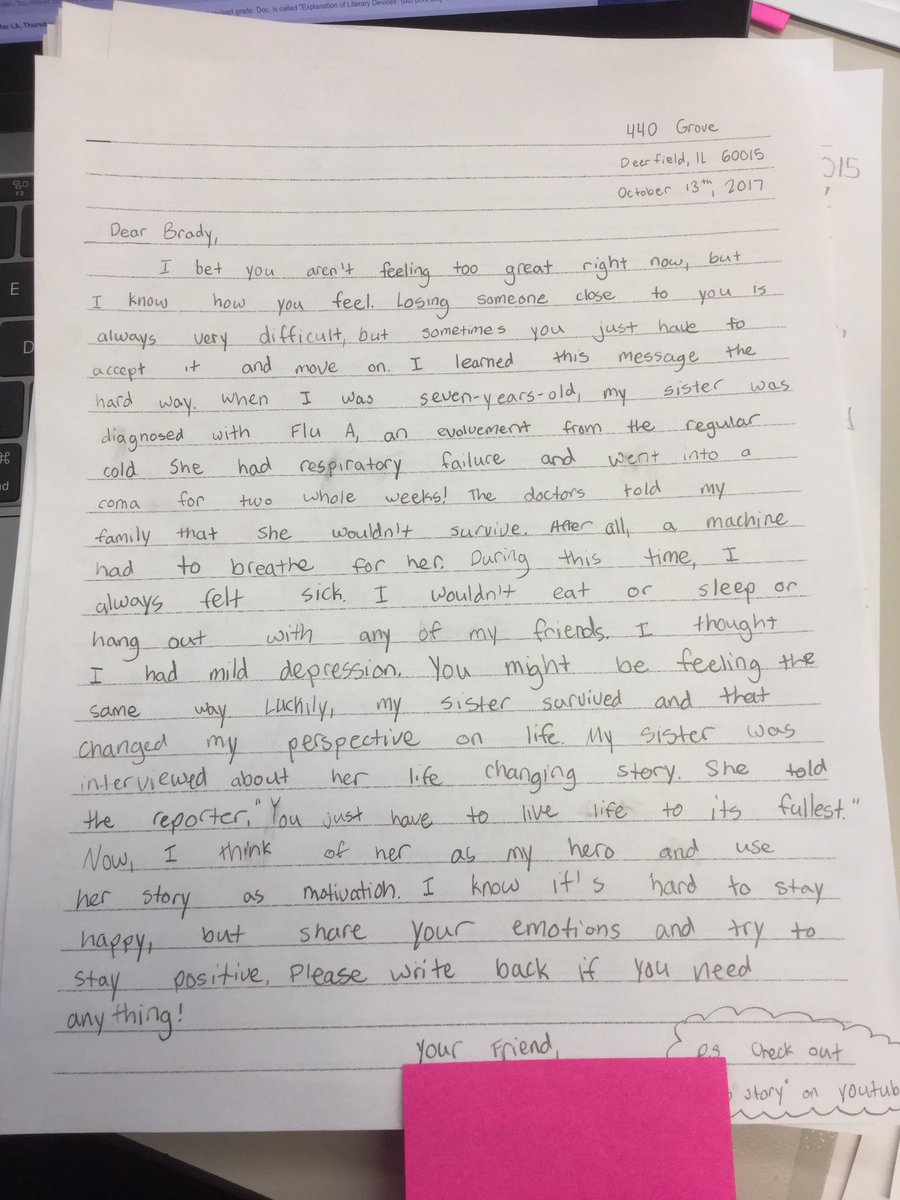 for LA, Thursd
ised grade. Doc. is called "Explanation of Literary Devices"
F3
E
D
440 Grove
Deerfield, IL 60015
015
October 13th, 2017
Dear Brady,
I bet you aren't feeling too great right now, but
I know how you feel. Losing someone close to you is
always very difficult, but sometimes you just have to
accept it and move on. I learned this message the
hard way. When I was seven-years-old, my sister was
diagnosed with Flu A, an evolvement from the regular
cold. She had respiratory failure and went into a
coma for two whole weeks! The doctors told my
family that she wouldn't survive. After all, a machine
had to breathe for her. During this time, I
always felt sick. I wouldn't eat or sleep or
hang out with any of my friends. I thought
I had mild depression. You might be feeling the
same way Luckily, my sister survived and that
changed my perspective on life. My sister was
interviewed about her life changing story. She told
the reporter, "You just have to live life to its fullest."
Now, I think of her as my hero and use
her story as motivation. I know it's hard to stay
happy, but share your emotions and try to
stay positive. Please write back if you need
anything!
Your Friend,
P.S Check out
story" on youtub